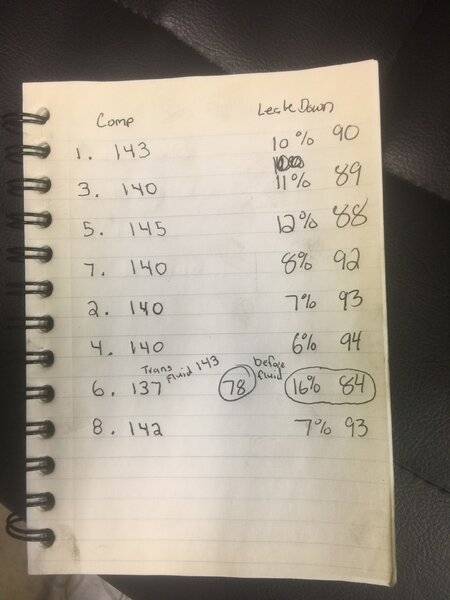 Comp Leak Down
1. 143 10% 90
3. 140 11% 89
5. 145 12% 88
7. 140 8% 92
2. 140 7% 93
4. 140 6% 94
Trans fluid 143 before fluid
6. 137 78 16% 84
8. 142 7% 93